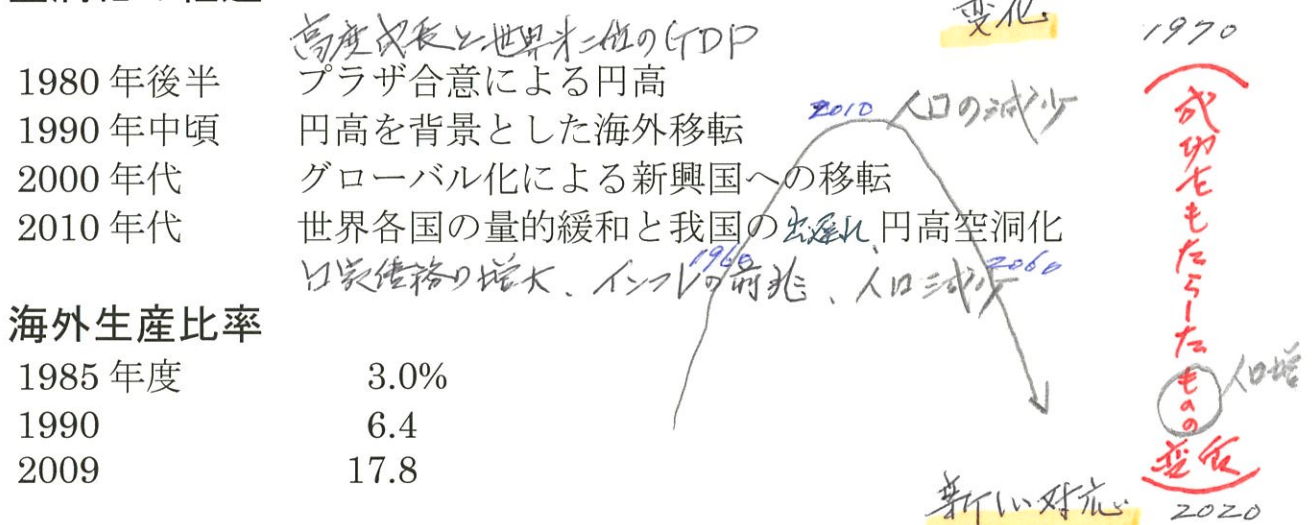 変化
1970
高度成長と世界第二位のGDP
1980年後半 プラザ合意による円高
1990年中頃 円高を背景とした海外移転
2000年代 グローバル化による新興国への移転
2010年代 世界各国の量的緩和と我国の出遅れ、円高空洞化
国家債務の増大、インフレの前兆、人口減少
2010 人口の減少
1960
2060
海外生産比率
1985年度 3.0%
1990 6.4
2009 17.8
(成功をもたらしたものの変質)
人口増
新しい対応
2020